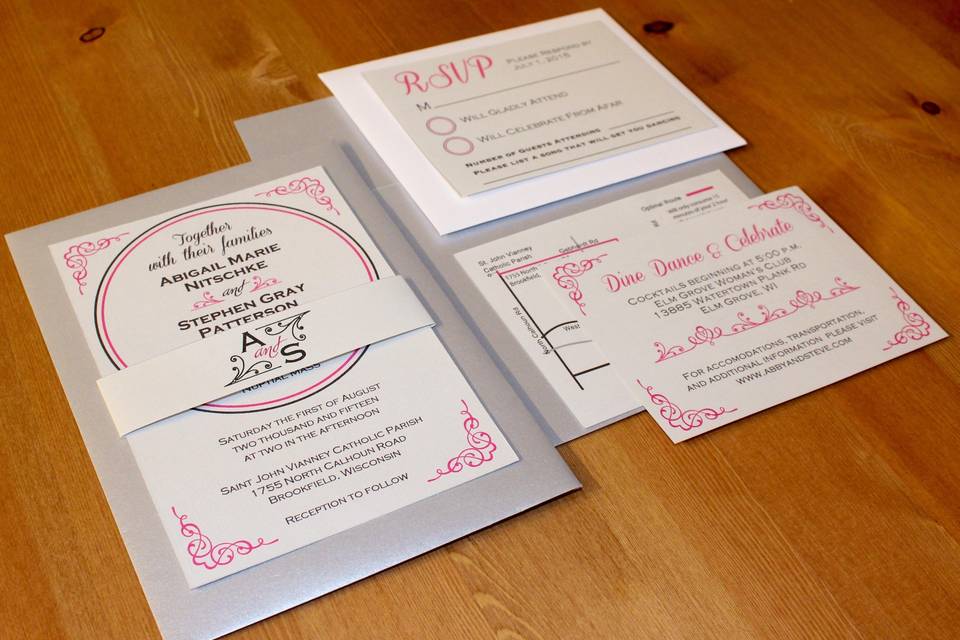 Together
with their families
ABIGAIL MARIE
NITSCHKE
and
STEPHEN GRAY
PATTERSON
A and S
NUPTIAL MASS
SATURDAY THE FIRST OF AUGUST
TWO THOUSAND AND FIFTEEN
AT TWO IN THE AFTERNOON
SAINT JOHN VIANNEY CATHOLIC PARISH
1755 NORTH CALHOUN ROAD
BROOKFIELD, WISCONSIN
RECEPTION TO FOLLOW
RSVP
PLEASE RESPOND BY
JULY 1, 2015
M
WILL GLADLY ATTEND
WILL CELEBRATE FROM AFAR
NUMBER OF GUESTS ATTENDING
PLEASE LIST A SONG THAT WILL GET YOU DANCING
St. John Vianney
Catholic Parish
1755 North
Brookfield,
Gebhardt Rd
North Calhoun Rd
West
Optional Route
will only consume 15
minutes of your 2 hour
Dine Dance & Celebrate
COCKTAILS BEGINNING AT 5:00 P.M.
ELM GROVE WOMAN'S CLUB
13885 WATERTOWN PLANK RD
ELM GROVE, WI
FOR ACCOMODATIONS, TRANSPORTATION,
AND ADDITIONAL INFORMATION PLEASE VISIT
WWW.ABBYANDSTEVE.COM